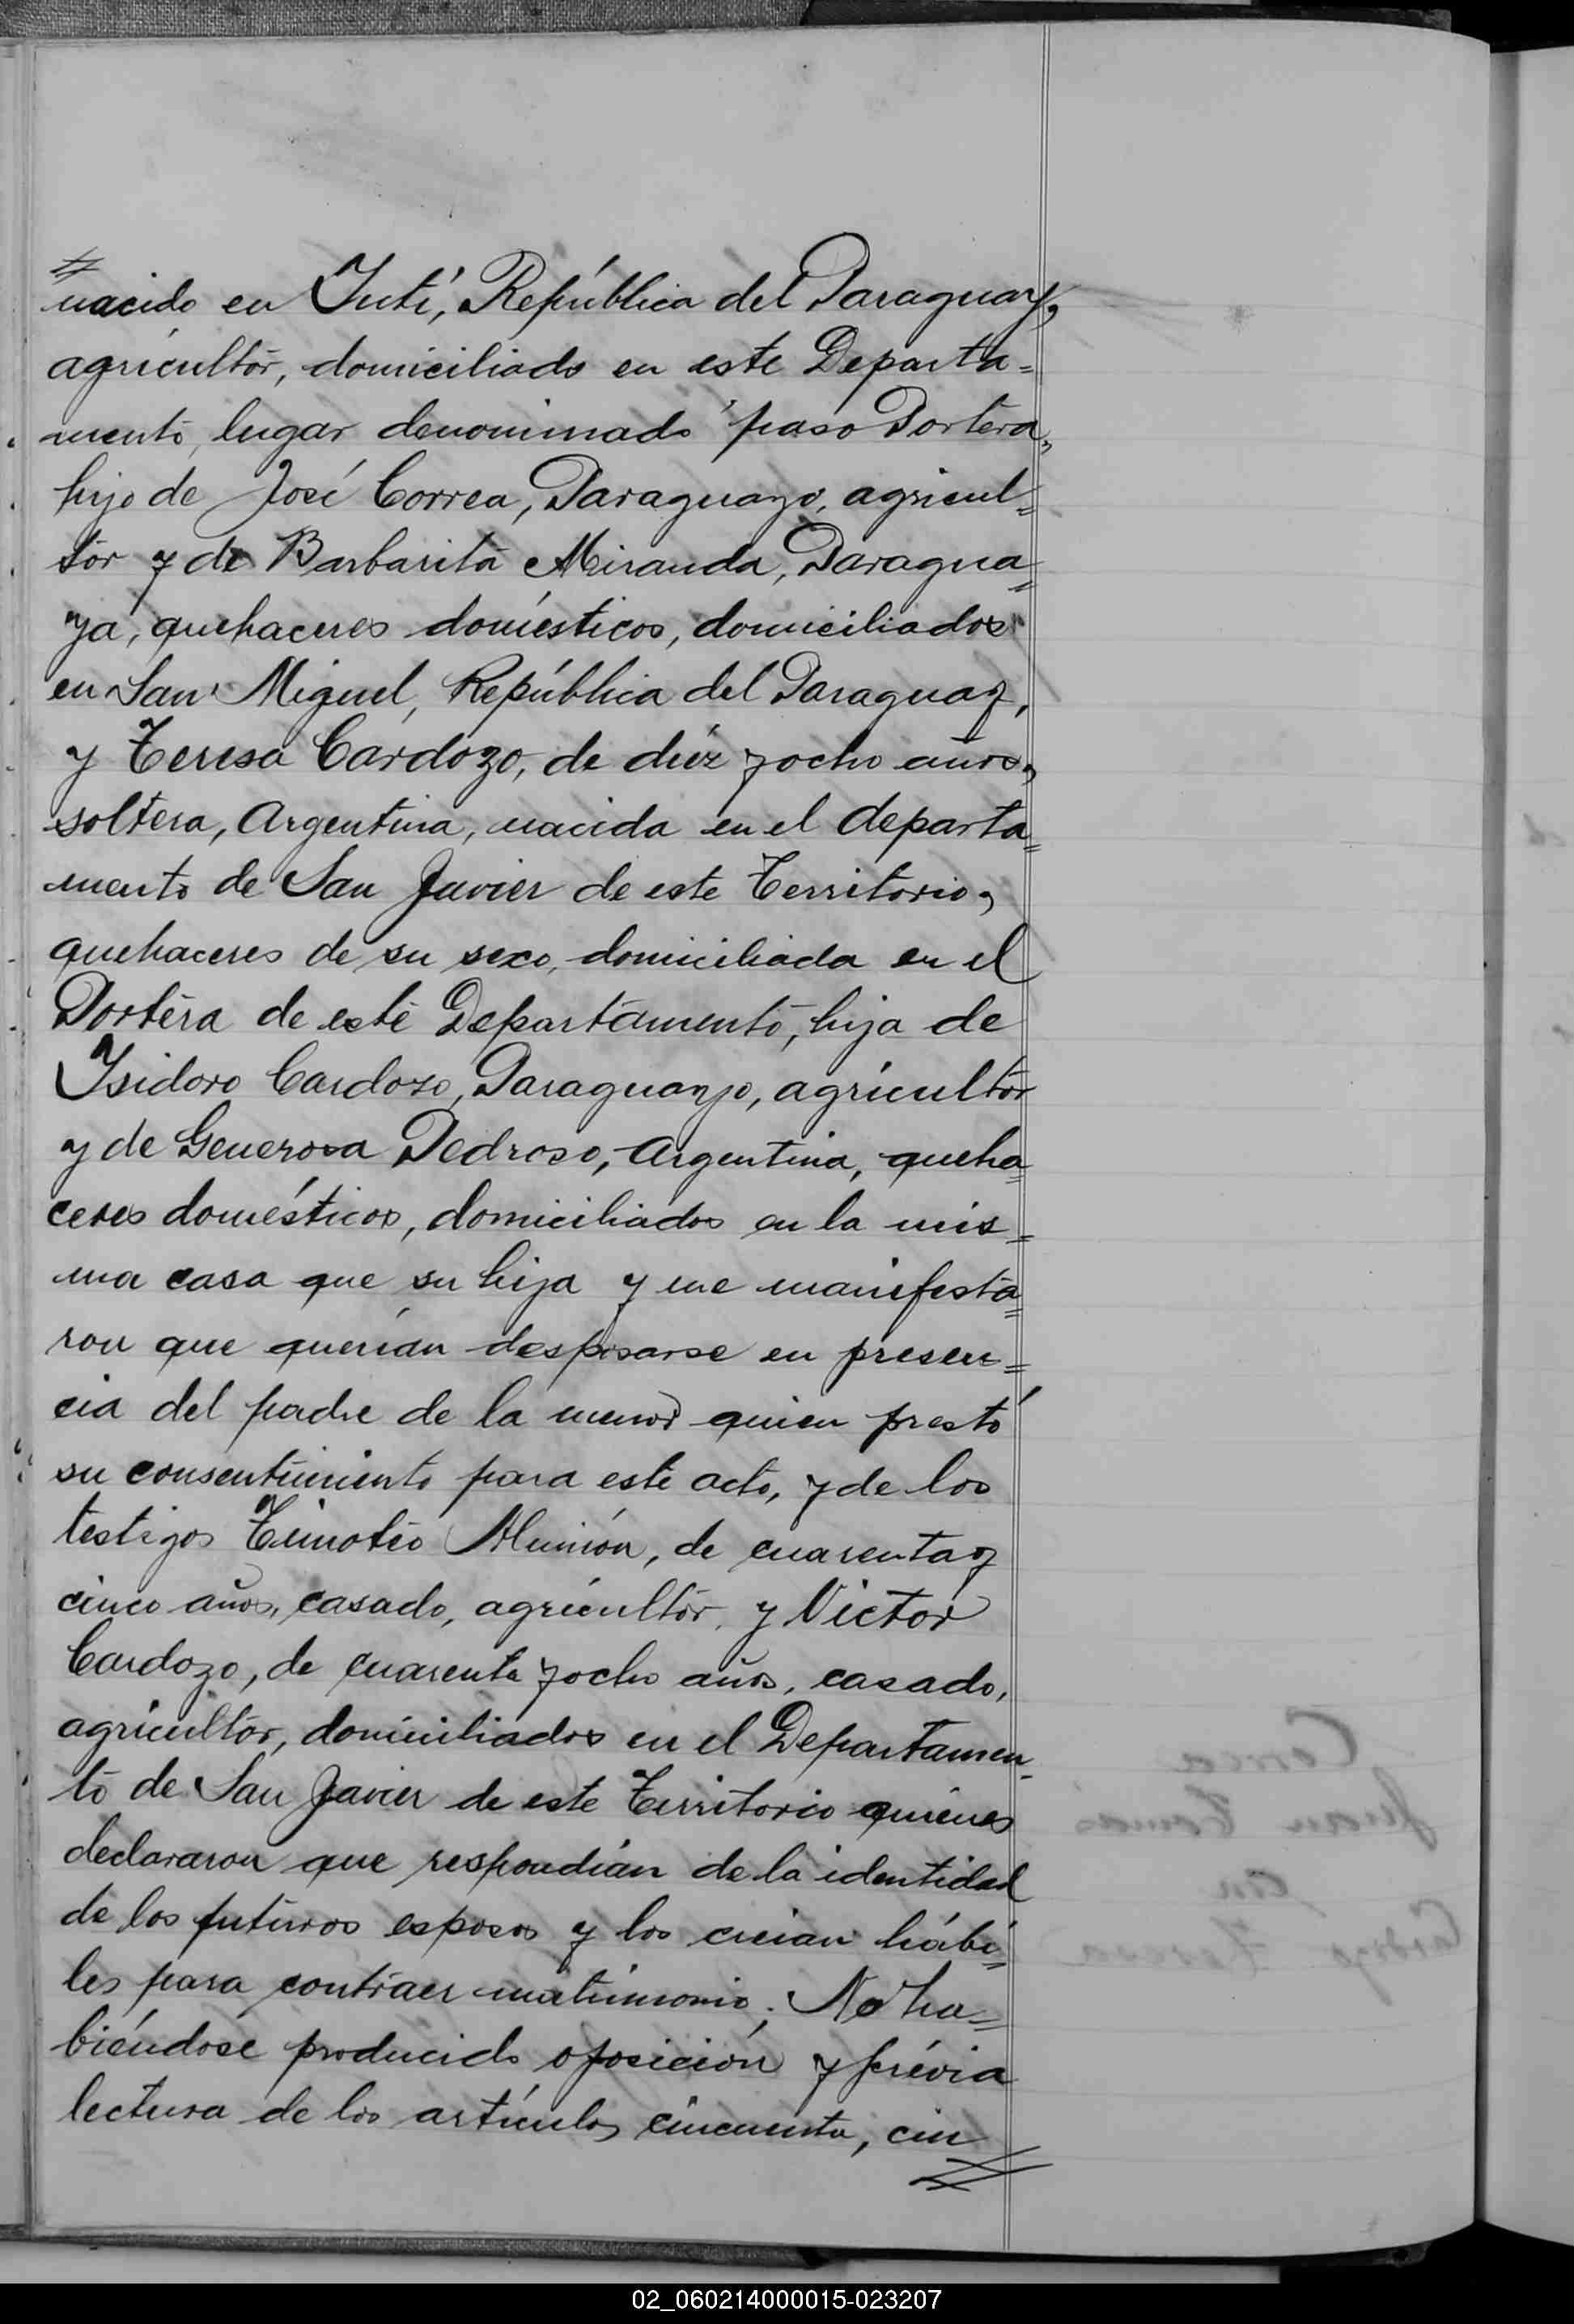 nacido en Yutí, República del Paraguay,
agricultor, domiciliado en este Departa=
mento, lugar denominado paso Portera,
hijo de José Correa, Paraguayo, agricul=
tor y de Barbarita Miranda, Paragua=
ya, quehaceres domésticos, domiciliados
en San Miguel, República del Paraguay,
y Teresa Cardozo, de diéz y ocho años,
soltera, Argentina, nacida en el departa=
mento de San Javier de este Territorio,
quehaceres de su sexo, domiciliada en el
Portera de este Departamento, hija de
Isidoro Cardozo, Paraguayo, agricultor
y de Generosa Pedroso, Argentina, queha=
ceres domésticos, domiciliados en la mis=
ma casa que su hija y me manifesta=
ron que querían desposarse en presen=
cia del padre de la menor quien prestó
su consentimiento para este acto, y de los
testigos Timoteo, de cuarenta y
cinco años, casado, agricultor, y Victor
Cardozo, de cuarenta y ocho años, casado,
agricultor, domiciliados en el Departamen=
to de San Javier de este Territorio quienes
declararon que respondían de la identidad
de los futuros esposos y los creían hábi=
les para contraer matrimonio. No ha=
biéndose producido oposición y prévia
lectura de los artículos cincuenta, cin
02_060214000015-023207